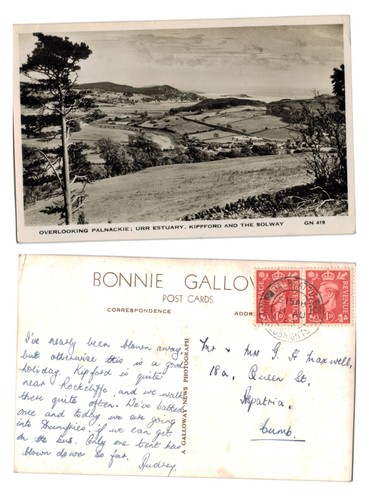 OVERLOOKING PALNACKIE; URR ESTUARY, KIPPFORD AND THE SOLWAY
GN 419
BONNIE GALLOW
POST CARDS
CORRESPONDENCE
ADDR
I've nearly been blown away
but otherwise this is a good
holiday. Kipford is quite
near Rockcliffe, and we walk
there quite often. We've bathed
once and today we are going
into Dumfries, if we can get
on the bus. Only one tent has
blown down so far.
Audrey.
A GALLOWAY NEWS PHOTOGRAPH
POSTAGE
REVENUE
1D
1D
Mr & Mrs G. H. Maxwell,
18a, Queen St,
Aspatria,
Cumb.